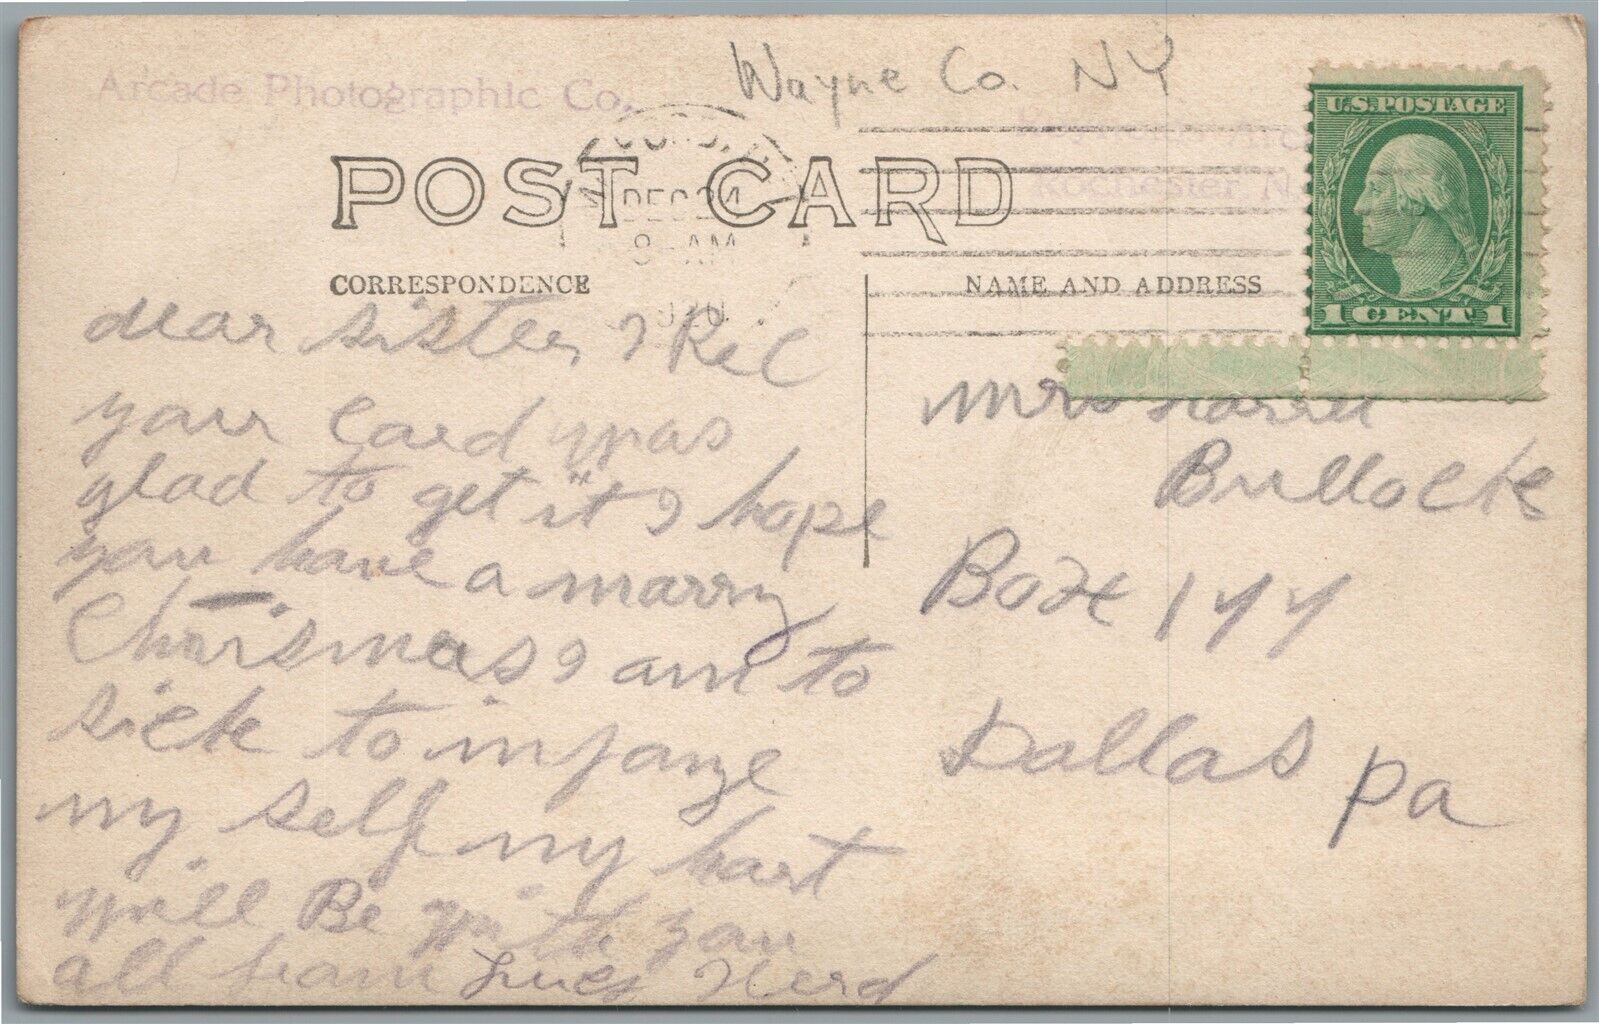 Wayne Co. NY
Arcade Photographic Co.
Arc
Rochester N
U.S. POSTAGE
1 CENT 1
POST CARD
DEC 24
AM
CORRESPONDENCE
NAME AND ADDRESS
dear sister I Rec
your Card was
glad to get "it" I hope
you have a marry
Chrismas I am to
sick to injoye
my self my hart
will Be with you
all from
Mrs
Bullock
Box 144
Dallas Pa